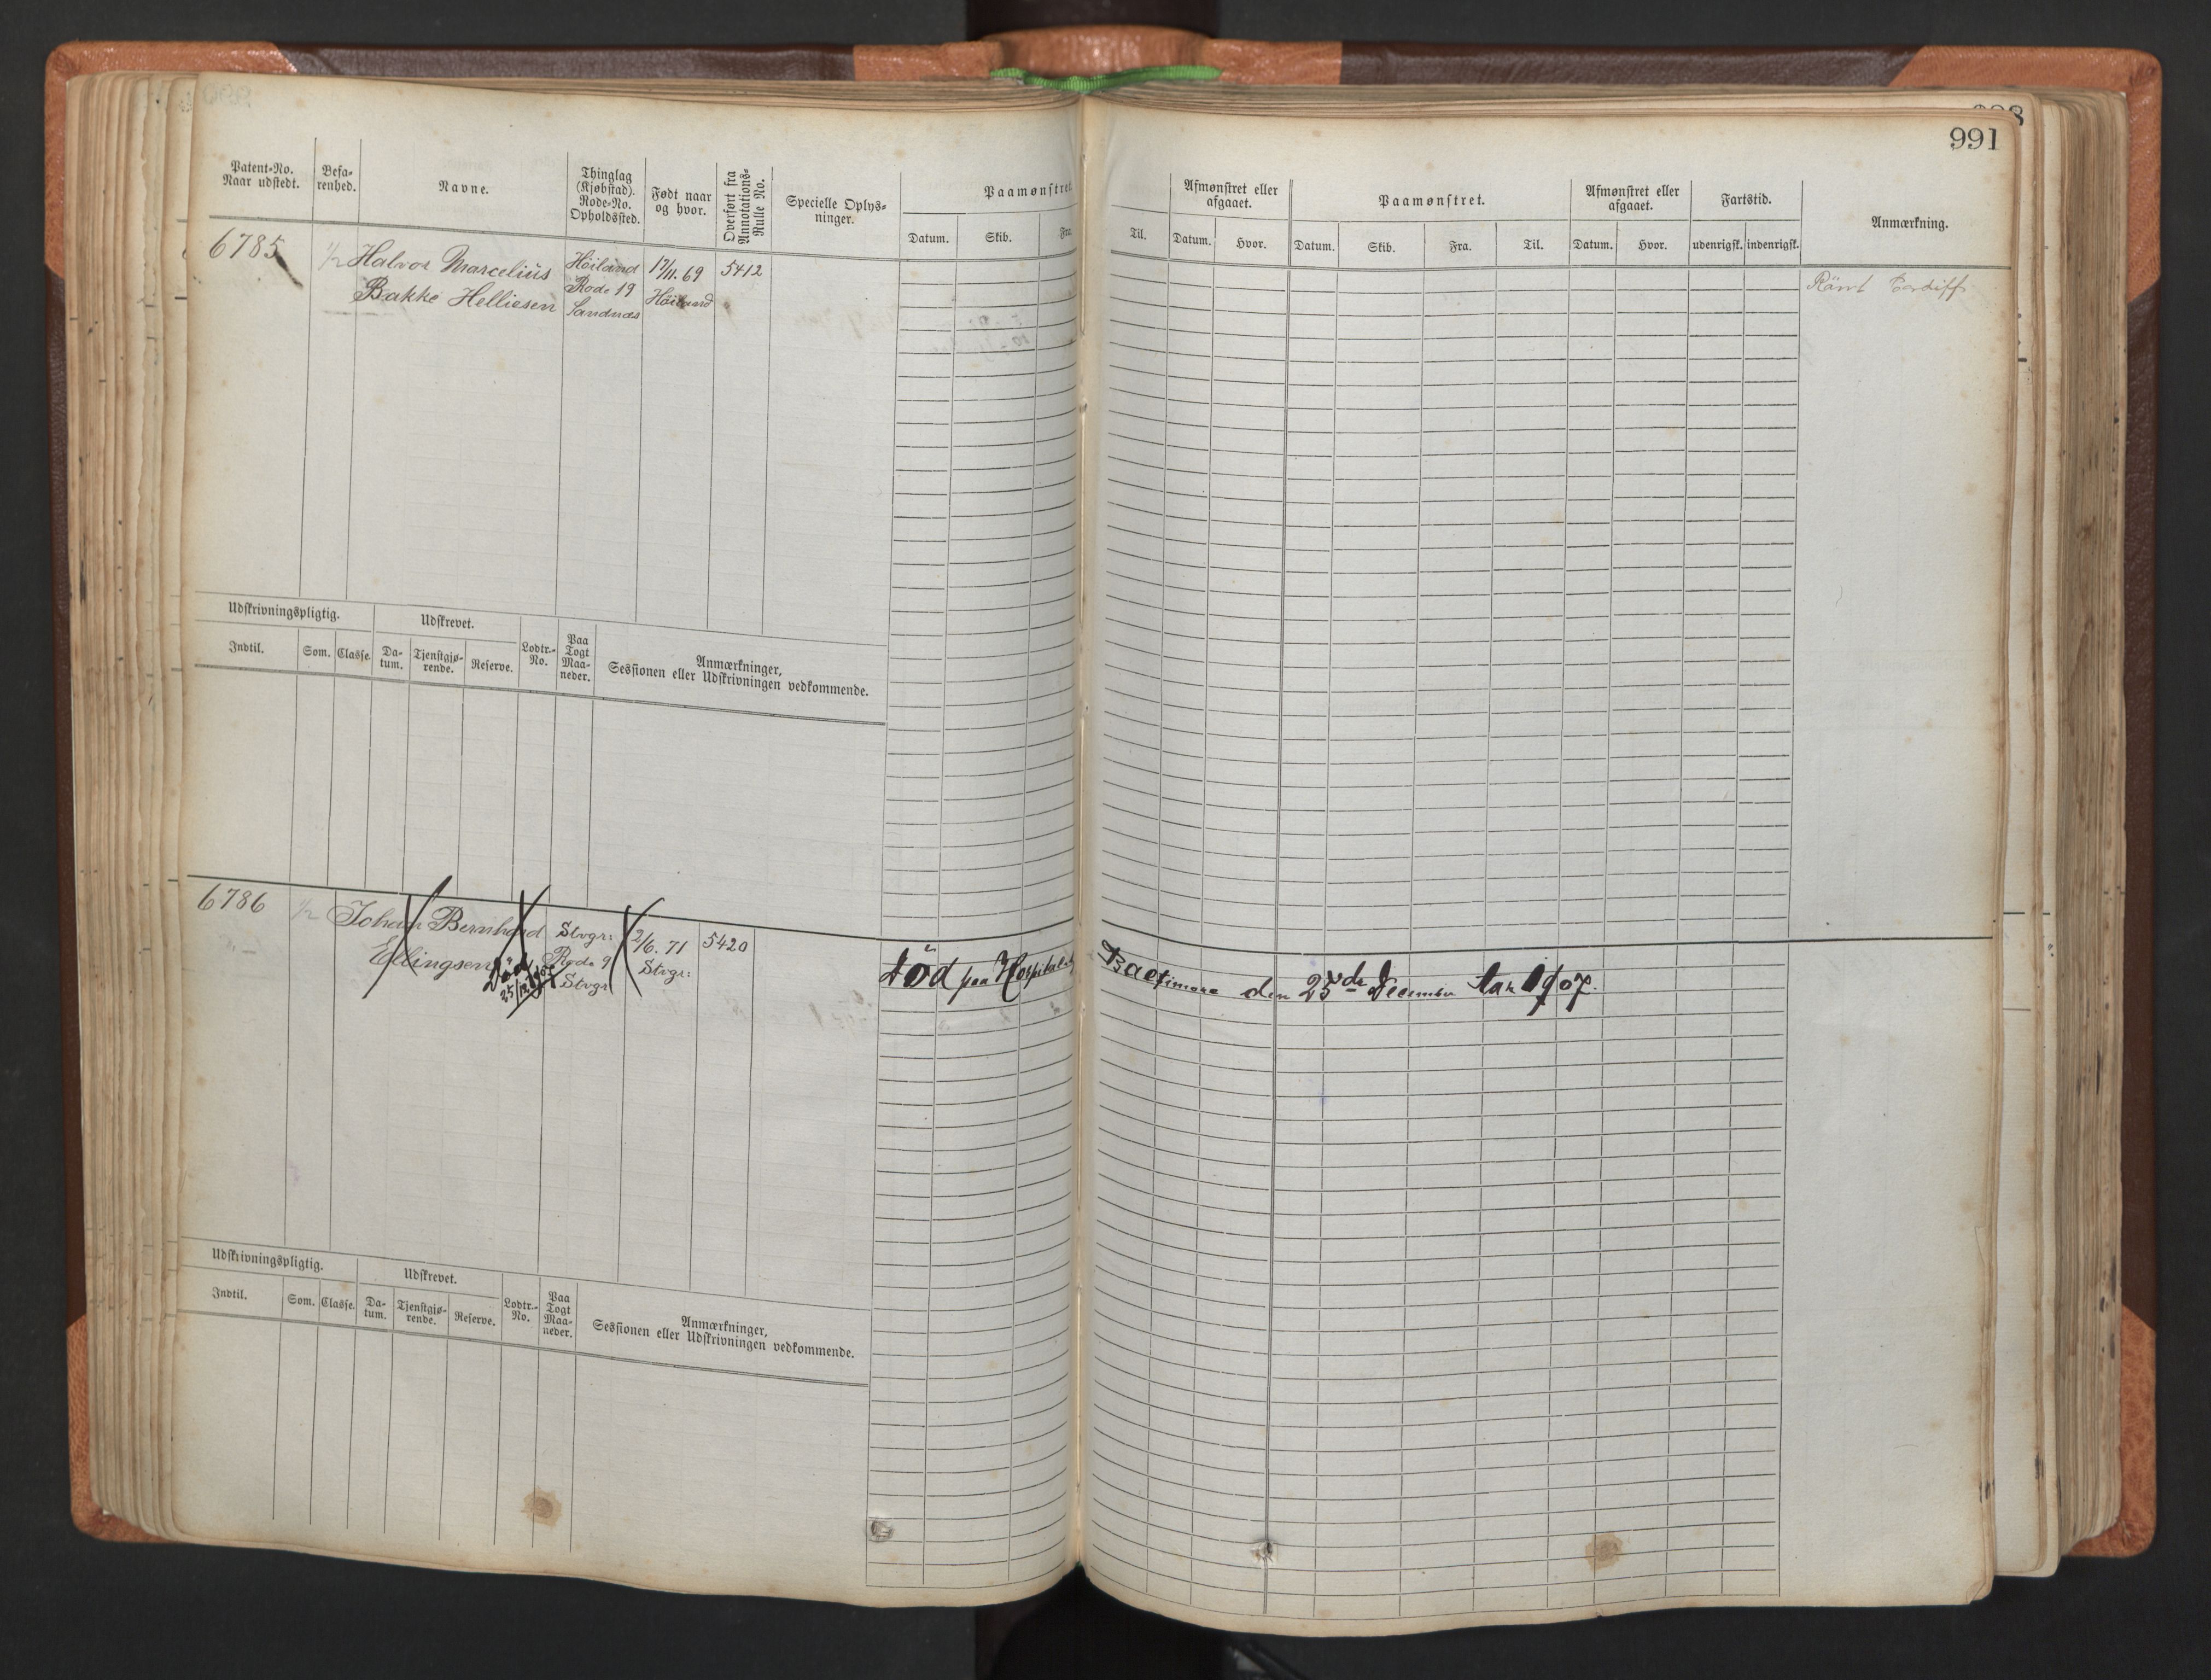 991
Patent-No.
Naar udstedt.
Befa-
renhed.
Navne.
Thinglag
(Kjøbstad).
Rode-No.
Opholdssted.
Født naar
og hvor.
Overført fra
Annotations-
Rulle No.
Specielle Oplys-
ninger.
Paamønstret
Datum.
Skib.
Fra
Til.
Afmønstret eller
afgaaet.
Datum.
Hvor.
Paamønstret.
Datum.
Skib.
Fra.
Til.
Afmønstret eller
afgaaet.
Datum.
Hvor.
Fartstid.
udenrigsk.
indenrigsk.
Anmærkning.
6785
1/2
Halvor Marcelius
Bakke Helliesen
Höiland
Rode 19
Sandnæs
17/11. 69
Höiland
5412
Römt Cardiff
Udskrivningspligtig.
Indtil.
Som.
Classe.
Udskrevet.
Da-
tum.
Tjenstgjø-
rende.
Reserve.
Lodtr.-
No.
Paa
Togt
Maa-
neder.
Anmærkninger,
Sessionen eller Udskrivningen vedkommende.
6786
1/2
Johan Bernhard
Ellingsen
Död
25/12 1907
Stvgr:
Rode 9
Stvgr
2/6. 71
Stvgr:
5420
död paa Hospitalet Baltimore den 25de December 1907.
Udskrivningspligtig.
Indtil.
Som.
Classe.
Udskrevet.
Da-
tum.
Tjenstgjø-
rende.
Reserve.
Lodtr.-
No.
Paa
Togt
Maa-
neder.
Anmærkninger,
Sessionen eller Udskrivningen vedkommende.